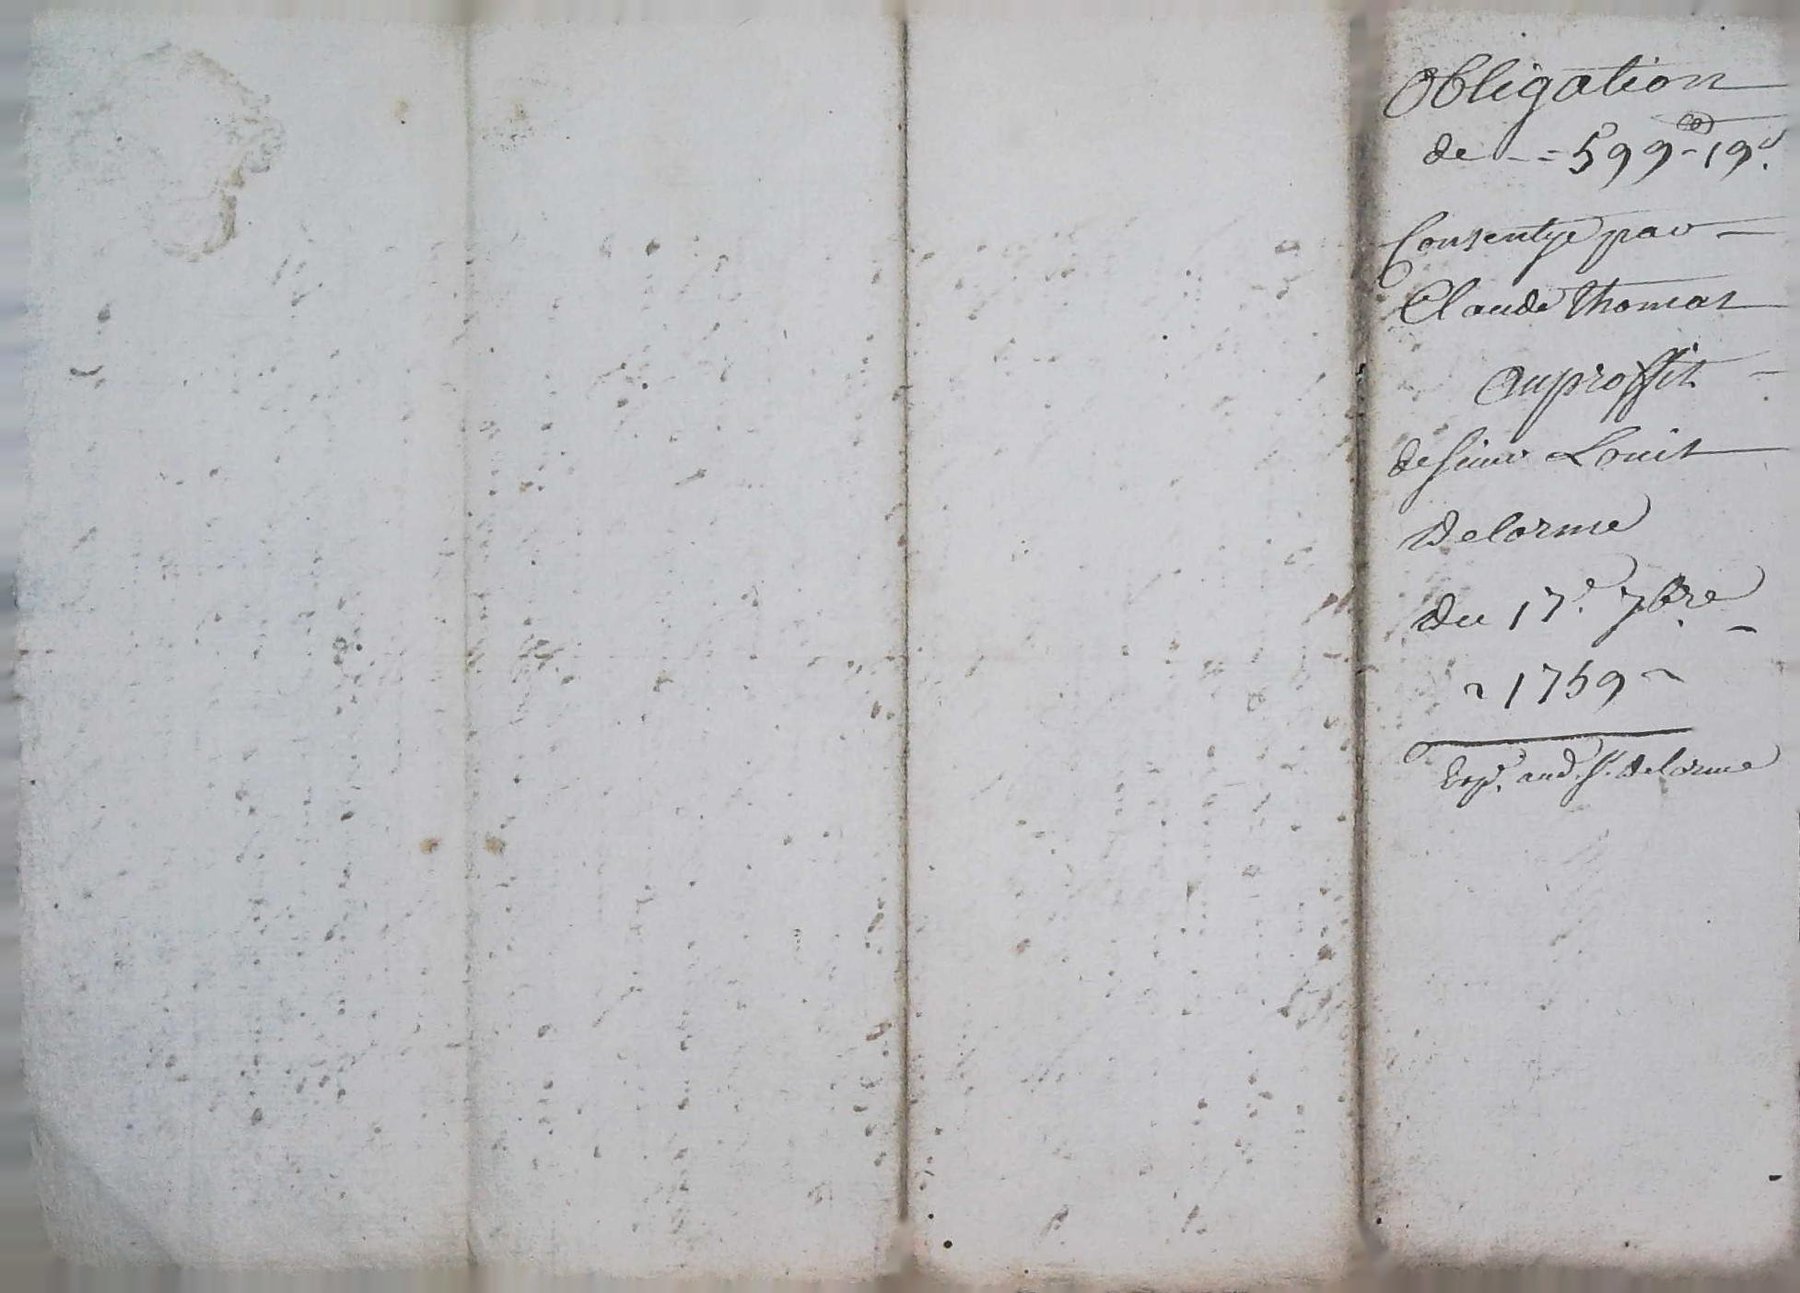 Obligation
de - - = 599 ᵗᵗ - 19 ˢ.
Consentye par -
Claude Thomas
au proffit -
de sieur Louis
Delorme
du 17.ᵉ 7bre -
~ 1759 ~
Exp.ᵉ aud. Sr. Delorme